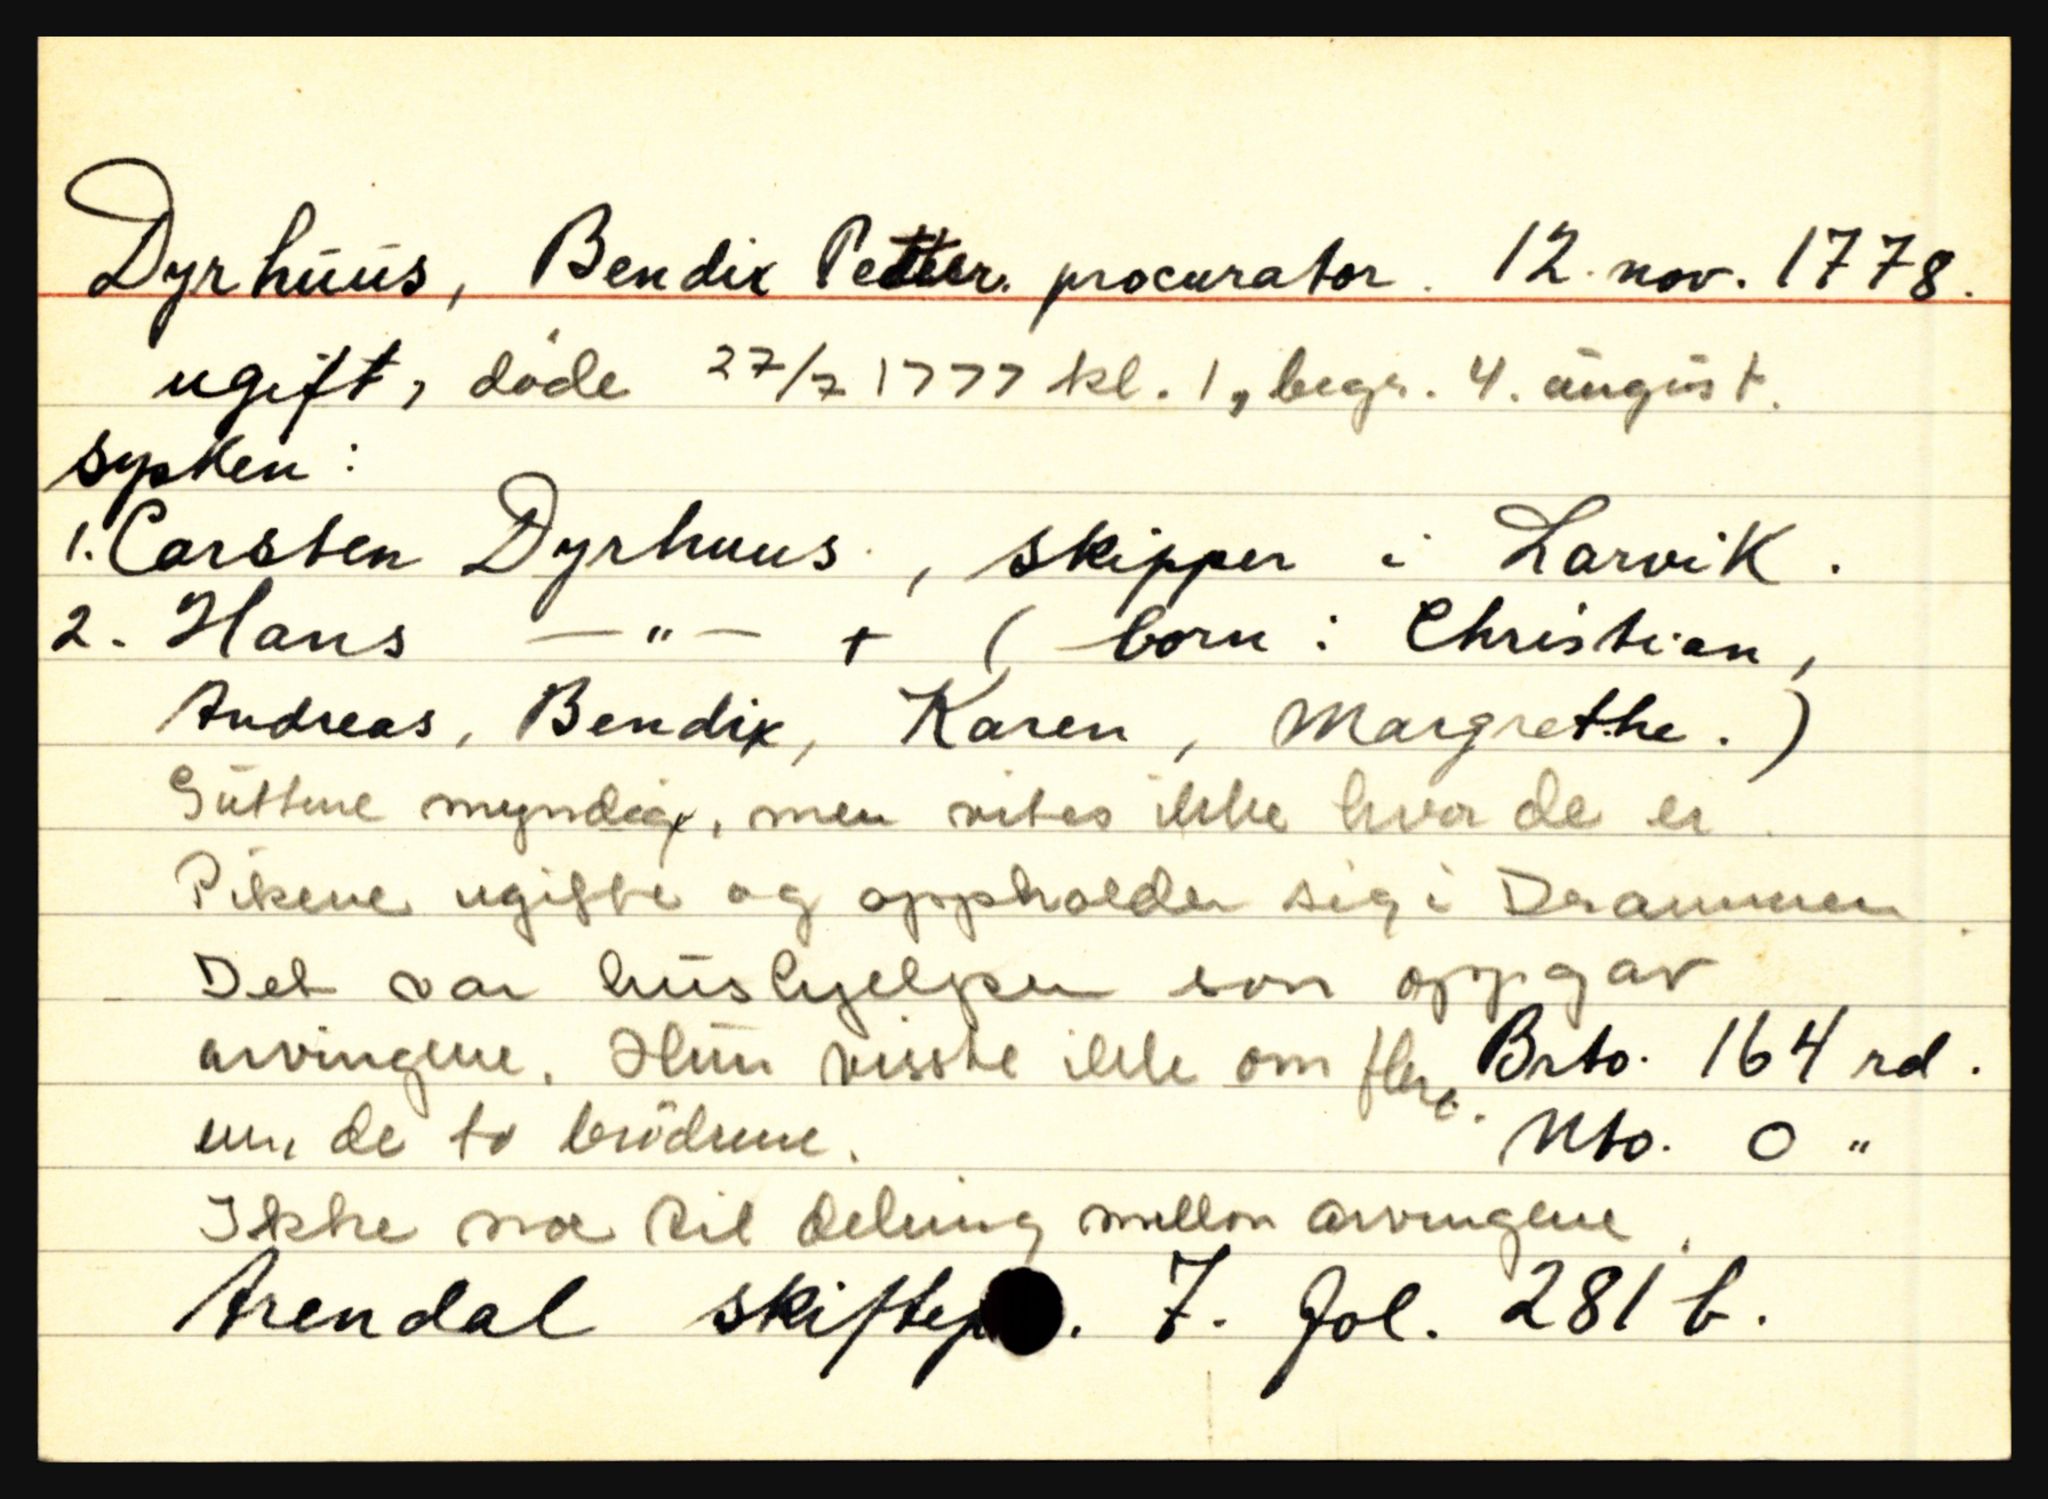 Dyrhuus, Bendix Petter. procurator. 12. nov. 1778.
ugift, døde 27/7 1777 kl. 1, begr. 4. august.
sysken:
1. Carsten Dyrhuus, skipper i Larvik.
2. Hans —"— + (born: Christian,
Andreas, Bendix, Karen, Margrethe.)
Guttene myndige, men vites ikke hvor de er.
Pikene ugifte og oppholder sig i Drammen.
Det var hushjelpen som oppgav
arvingene. Hun visste ikke om flere
enn de to brødrene.
Brto. 164 rd.
Nto. 0 "
Ikke noe til deling mellom arvingene.
Arendal skiftep. 7. fol. 281 b.